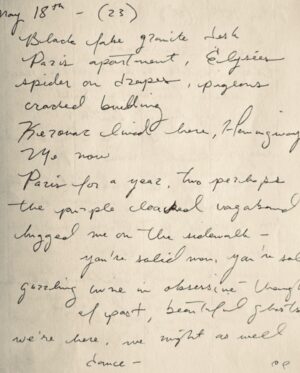 May 18th - (23)
Black fake granite desk
Paris apartment, Élysées
spider on drapes, pigeons
cracked building
Kerouac lived here, Hemingway
Me now
Paris for a year, two perhaps
the purple cloaked vagabond
hugged me on the sidewalk -
you're solid now, you're sol
guzzling wine in obsessive thought
of past, beautiful ghosts
we're here, we might as well
dance -